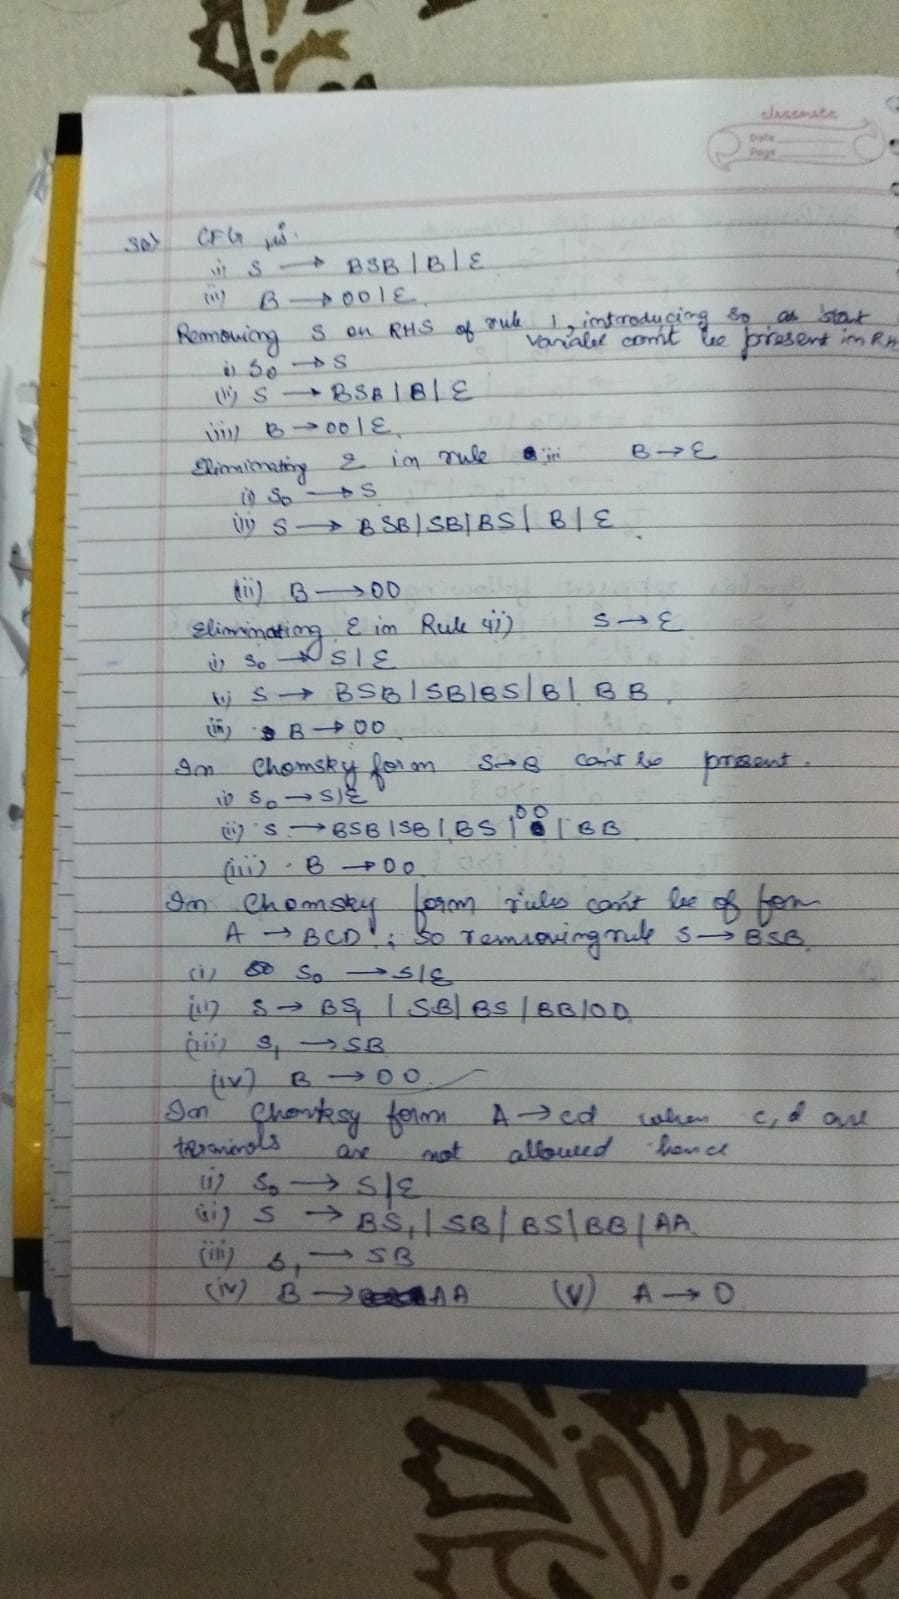 classmate
Date
Page
3a) CFG is.
(i) S → BSB | B | ε
(ii) B → 00 | ε
Removing S on RHS of rule 1, introducing S₀ as start
variable can't be present in RH
i) S₀ → S
(ii) S → BSB | B | ε
iii) B → 00 | ε
Eliminating ε in rule iii B → ε
i) S₀ → S
ii) S → BSB | SB | BS | B | ε
(iii) B → 00
Eliminating ε in Rule ii) S → ε
i) S₀ → S | ε
ii) S → BSB | SB | BS | B | BB
(iii) B → 00
In Chomsky form S → B can't be present.
i) S₀ → S | ε
(ii) S → BSB | SB | BS | 00 | BB
(iii) B → 00
In Chomsky form rules can't be of form
A → BCD ; so removing rule S → BSB
(i) S₀ → S | ε
(ii) S → BS₁ | SB | BS | BB | 00
(iii) S₁ → SB
(iv) B → 00
In Chomksy form A → cd when c, d are
terminals are not allowed hence
(i) S₀ → S | ε
(ii) S → BS₁ | SB | BS | BB | AA
(iii) S₁ → SB
(iv) B → AA (V) A → 0